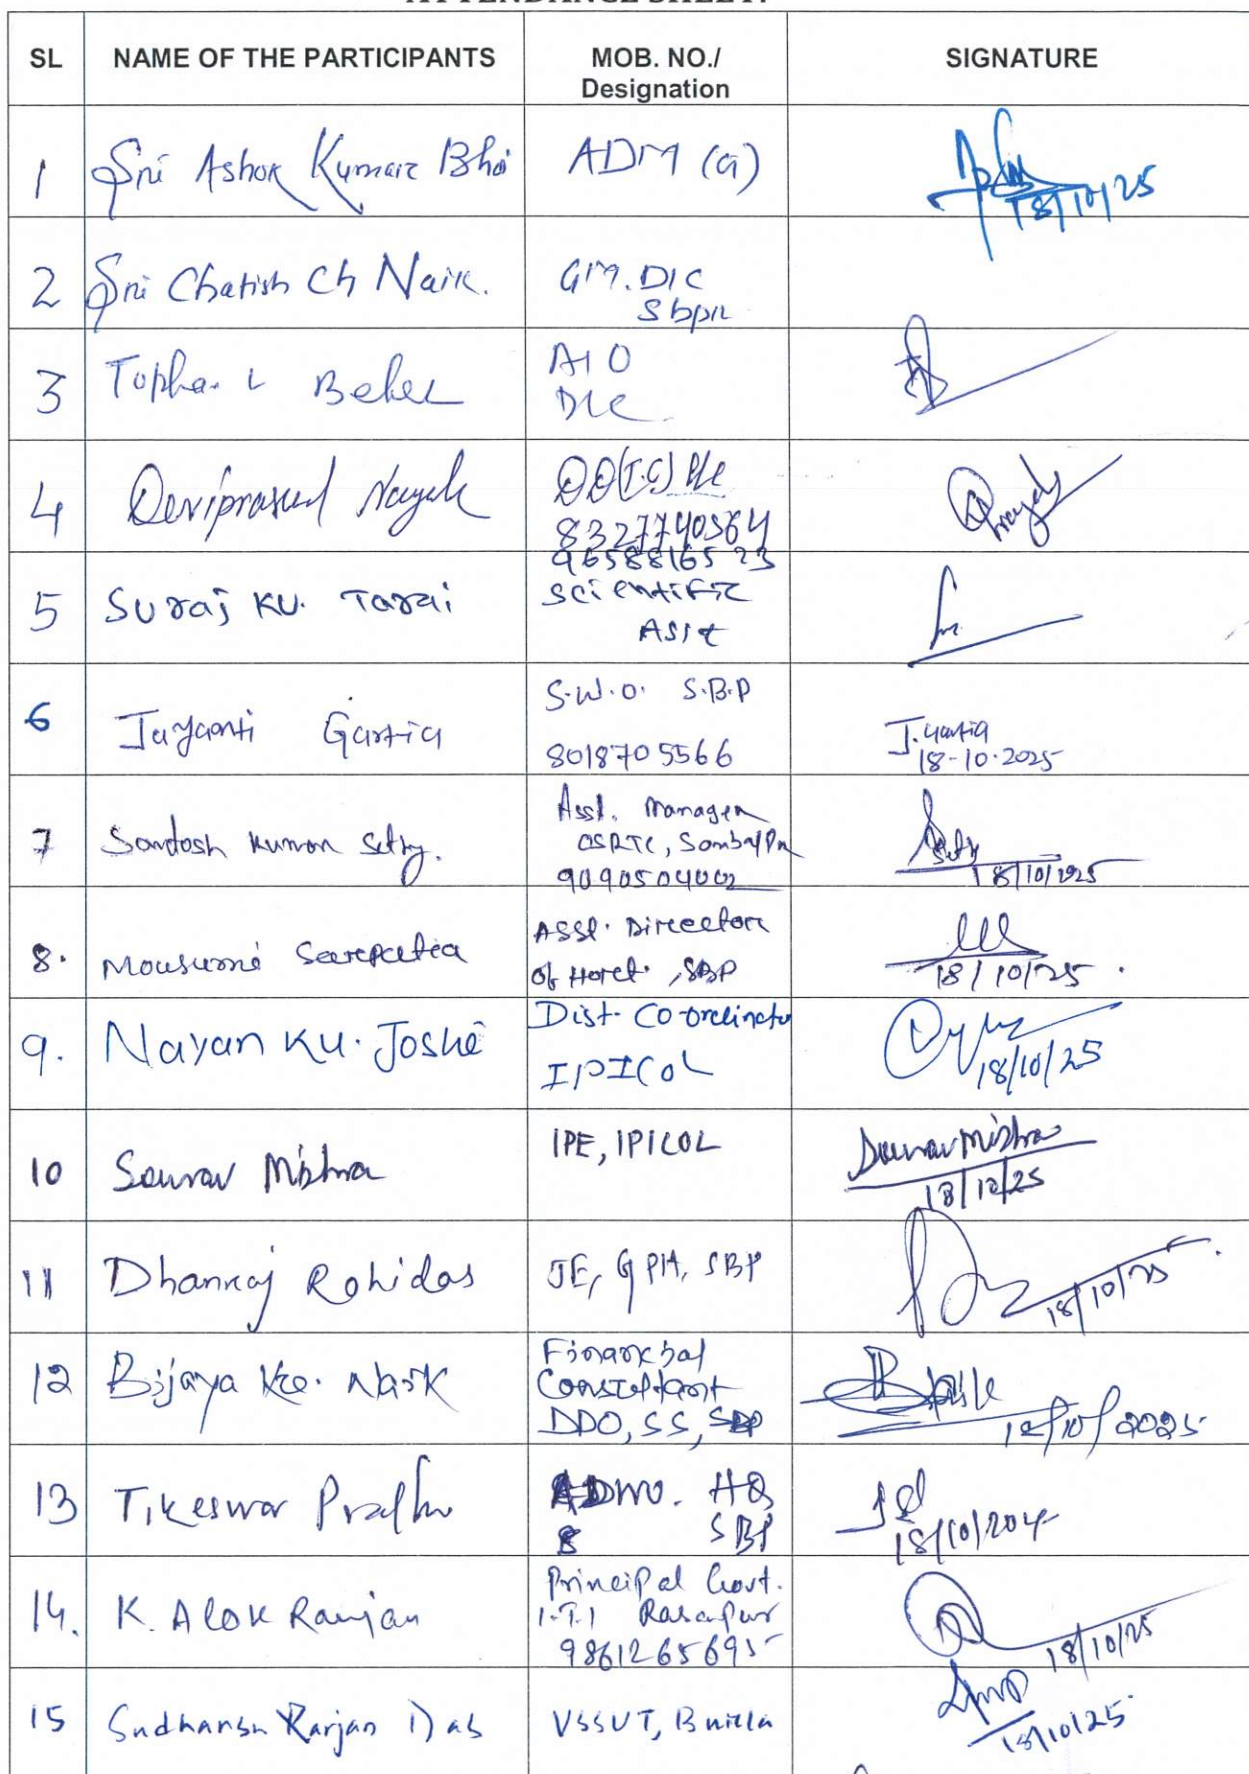 ATTENDANCE SHEET:
SL NAME OF THE PARTICIPANTS MOB. NO./ Designation SIGNATURE
1 Sri Ashok Kumar Bhoi ADM (G) 18/10/25
2 Sri Chatish Ch Naik. GM. DIC
Sbpr
3 AIO
DIC
4 Deviprasad Nayak
8327740564
5 Suraj KU. Tarai 9658816523
Scientific
Asst
6 Jayanti Gartia S.W.O. S.B.P
8018705566
J. Gartia
18-10-2025
7 Santosh Kumar Sethy. Asst. Manager
OSRTC, Sambalpur
9090504002
18/10/2025
8. Mousumi Asst. Director
Of Hort. , SBP
18/10/25.
9. Nayan KU. Joshi Dist. Co-ordinator
IPICOL
18/10/25
10 Sourav Mishra IPE, IPICOL Sourav Mishra
18/10/25
11 Dhanraj Rohidas JE, GPH, SBP 18/10/25
12 Bijaya Ku. Naik Financial
Consultant
DDO, SS, SBP
18/10/2025
13 Tikeswar ADMO. HQ
SBP
18/10/
14. K. Alok Ranjan Principal Govt.
I.T.I Rasanpur
9861265695
18/10/25
15 Sudhansu Ranjan Das VSSUT, Burla 18/10/25